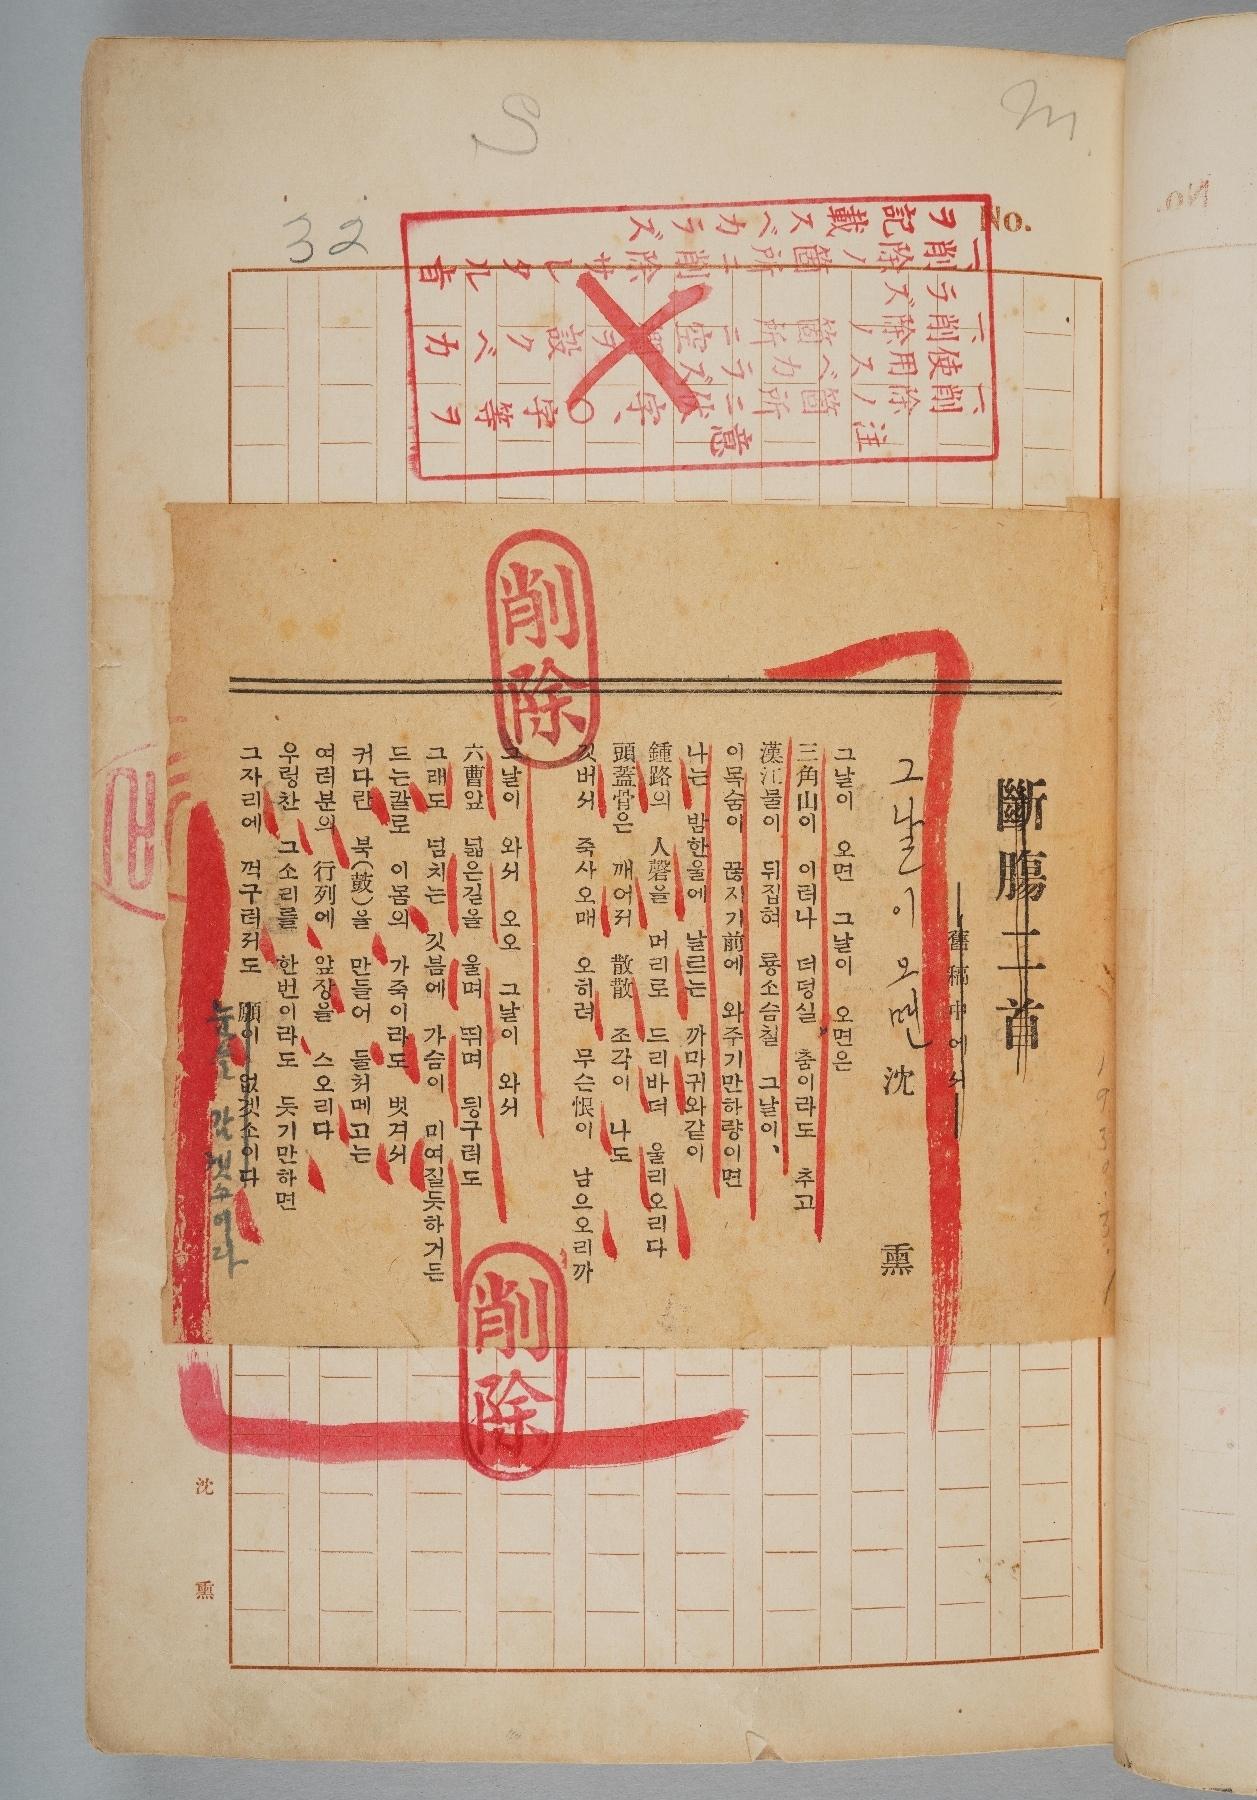 No.
32
S
m
一、削除ノ箇所ニ削除サレタル旨
ヲ記載スベカラズ
一、削除ノ箇所ニ空
ラズ
一、削除ノ箇所ニ
使用スベカラズ
注意
斷腸二首
──舊稿中에서──
그날이 오면 沈 熏
그날이 오면 그날이 오면은
三角山이 이러나 더덩실 춤이라도 추고
漢江물이 뒤집혀 룡소슴칠 그날이、
이목숨이 끊지기前에 와주기만하량이면
나는 밤한울에 날르는 까마귀와같이
鍾路의 人磬을 머리로 드리바더 울리오리다
頭蓋骨은 깨어저 散散 조각이 나도
깃버서 죽사오매 오히려 무슨恨이 남으오리까
그날이 와서 오오 그날이 와서
六曹앞 넓은길을 울며 뛰며 딩구러도
그래도 넘치는 깃븜에 가슴이 미여질듯하거든
드는칼로 이몸의 가죽이라도 벗겨서
커다란 북(鼓)을 만들어 둘처메고는
여러분의 行列에 앞장을 스오리다
우렁찬 그소리를 한번이라도 듯기만하면
그자리에 꺽구러저도 願이 없겟소이다
눈을 감겟소이다
削除
削除
沈 熏